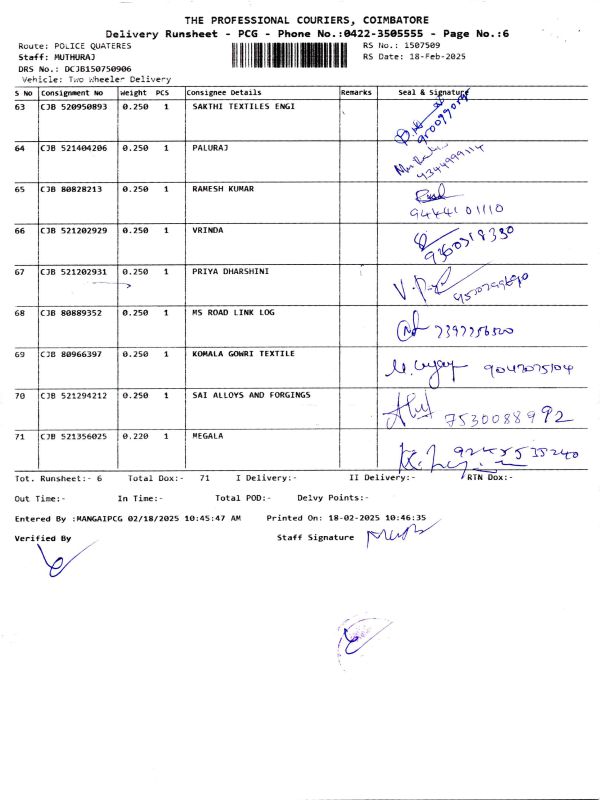 THE PROFESSIONAL COURIERS, COIMBATORE
Delivery Runsheet - PCG - Phone No.:0422-3505555 - Page No.:6
Route: POLICE QUATERES RS No.: 1507509
Staff: MUTHURAJ RS Date: 18-Feb-2025
DRS No.: DCJB150750906
Vehicle: Two Wheeler Delivery
S No Consignment No Weight PCS Consignee Details Remarks Seal & Signature
63 CJB 520950893 0.250 1 SAKTHI TEXTILES ENGI
64 CJB 521404206 0.250 1 PALURAJ
65 CJB 80828213 0.250 1 RAMESH KUMAR
9444101110
66 CJB 521202929 0.250 1 VRINDA
9360318330
67 CJB 521202931 0.250 1 PRIYA DHARSHINI
68 CJB 80889352 0.250 1 MS ROAD LINK LOG
7397756520
69 CJB 80966397 0.250 1 KOMALA GOWRI TEXTILE
9047075104
70 CJB 521294212 0.250 1 SAI ALLOYS AND FORGINGS
7530088992
71 CJB 521356025 0.220 1 MEGALA
9245535240
Tot. Runsheet:- 6 Total Dox:- 71 I Delivery:- II Delivery:- RTN Dox:-
Out Time:- In Time:- Total POD:- Delvy Points:-
Entered By :MANGAIPCG 02/18/2025 10:45:47 AM Printed On: 18-02-2025 10:46:35
Verified By Staff Signature